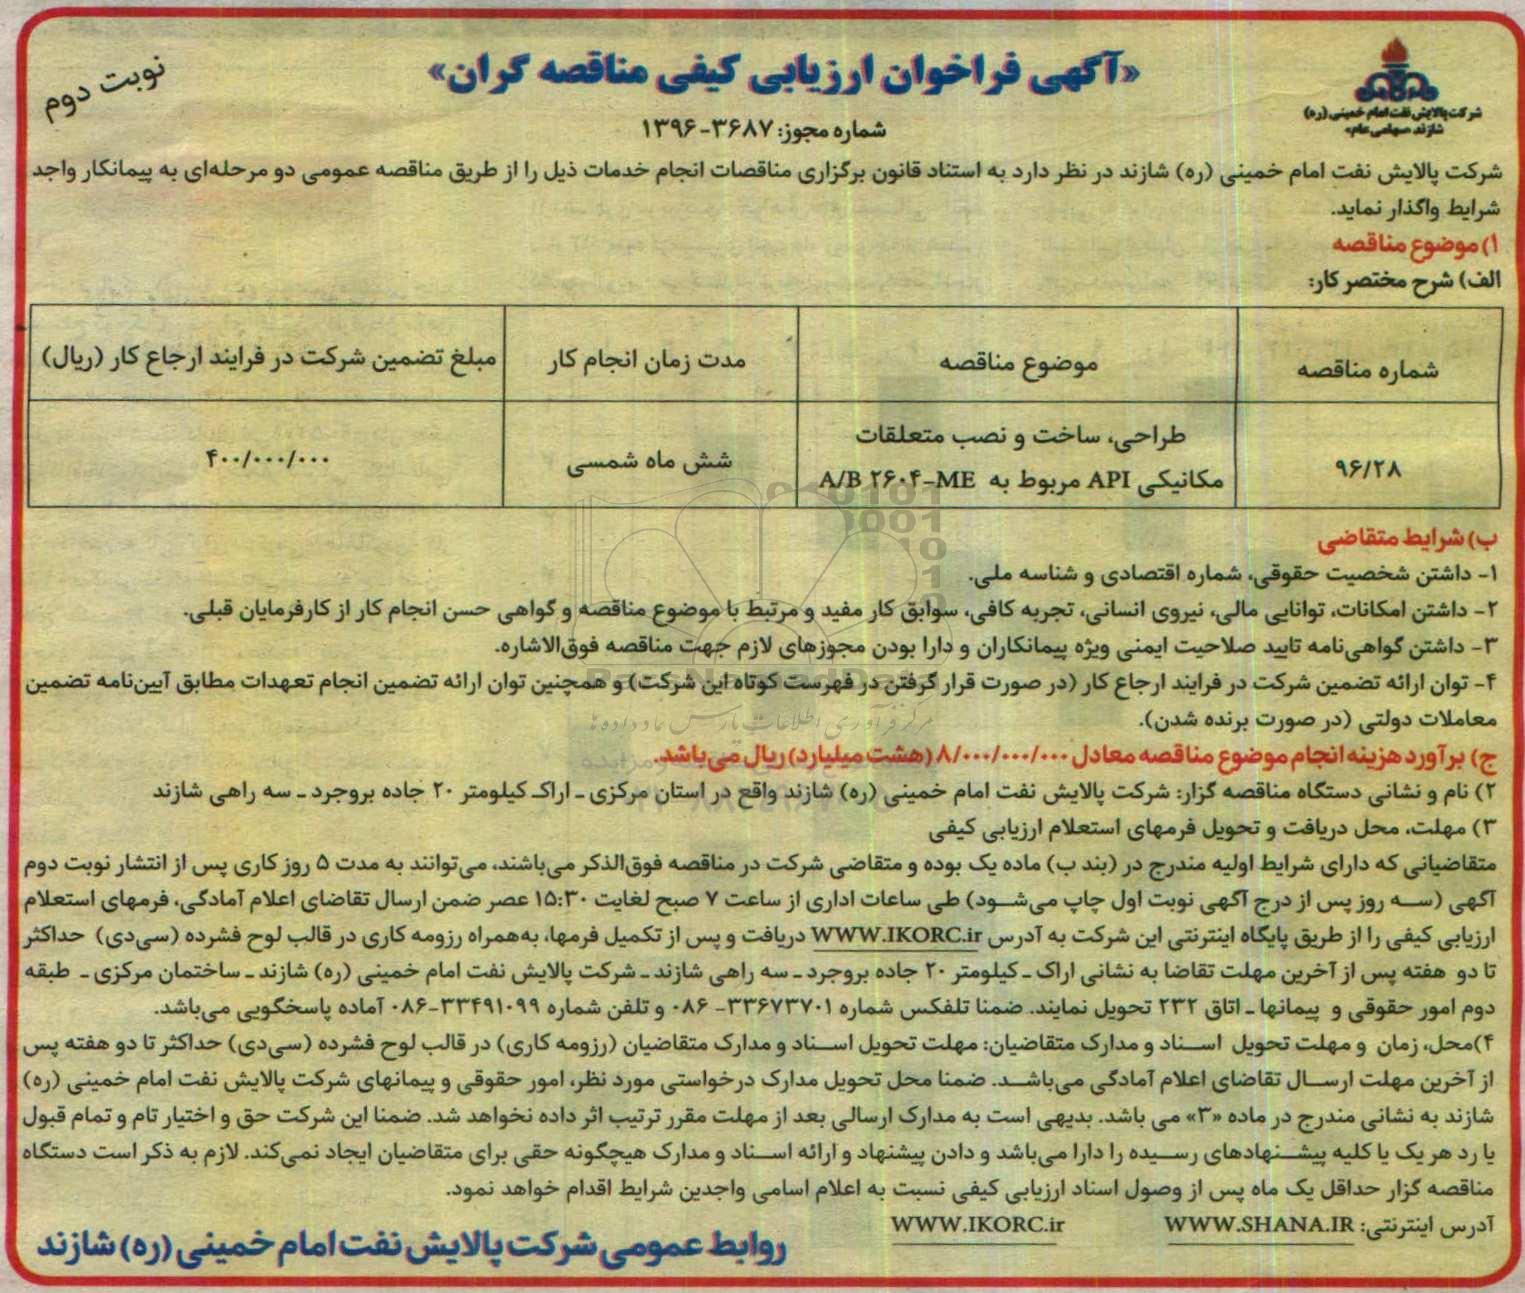 شرکت پالایش نفت امام خمینی (ره)
شازند «سهامی عام»
«آگهی فراخوان ارزیابی کیفی مناقصه گران»
نوبت دوم
شماره مجوز: ۳۶۸۷-۱۳۹۶
شرکت پالایش نفت امام خمینی (ره) شازند در نظر دارد به استناد قانون برگزاری مناقصات انجام خدمات ذیل را از طریق مناقصه عمومی دو مرحله‌ای به پیمانکار واجد
شرایط واگذار نماید.
۱) موضوع مناقصه
الف) شرح مختصر کار:
شماره مناقصه	موضوع مناقصه	مدت زمان انجام کار	مبلغ تضمین شرکت در فرایند ارجاع کار (ریال)
۹۶/۲۸	طراحی، ساخت و نصب متعلقات	شش ماه شمسی	۴۰۰/۰۰۰/۰۰۰
مکانیکی API مربوط به A/B ۲۶۰۴-ME
ب) شرایط متقاضی
۱- داشتن شخصیت حقوقی، شماره اقتصادی و شناسه ملی.
۲- داشتن امکانات، توانایی مالی، نیروی انسانی، تجربه کافی، سوابق کار مفید و مرتبط با موضوع مناقصه و گواهی حسن انجام کار از کارفرمایان قبلی.
۳- داشتن گواهی‌نامه تایید صلاحیت ایمنی ویژه پیمانکاران و دارا بودن مجوزهای لازم جهت مناقصه فوق‌الاشاره.
۴- توان ارائه تضمین شرکت در فرایند ارجاع کار (در صورت قرار گرفتن در فهرست کوتاه این شرکت) و همچنین توان ارائه تضمین انجام تعهدات مطابق آیین‌نامه تضمین
معاملات دولتی (در صورت برنده شدن).
مرکز فرآوری اطلاعات پارس نماد داده ها
ج) برآورد هزینه انجام موضوع مناقصه معادل ۸/۰۰۰/۰۰۰/۰۰۰ (هشت میلیارد) ریال می‌باشد.
۲) نام و نشانی دستگاه مناقصه گزار: شرکت پالایش نفت امام خمینی (ره) شازند واقع در استان مرکزی ـ اراک کیلومتر ۲۰ جاده بروجرد ـ سه راهی شازند
۳) مهلت، محل دریافت و تحویل فرمهای استعلام ارزیابی کیفی
متقاضیانی که دارای شرایط اولیه مندرج در (بند ب) ماده یک بوده و متقاضی شرکت در مناقصه فوق‌الذکر می‌باشند، می‌توانند به مدت ۵ روز کاری پس از انتشار نوبت دوم
آگهی (سه روز پس از درج آگهی نوبت اول چاپ می‌شود) طی ساعات اداری از ساعت ۷ صبح لغایت ۱۵:۳۰ عصر ضمن ارسال تقاضای اعلام آمادگی، فرمهای استعلام
ارزیابی کیفی را از طریق پایگاه اینترنتی این شرکت به آدرس WWW.IKORC.ir دریافت و پس از تکمیل فرمها، به‌همراه رزومه کاری در قالب لوح فشرده (سی‌دی) حداکثر
تا دو هفته پس از آخرین مهلت تقاضا به نشانی اراک ـ کیلومتر ۲۰ جاده بروجرد ـ سه راهی شازند ـ شرکت پالایش نفت امام خمینی (ره) شازند ـ ساختمان مرکزی ـ طبقه
دوم امور حقوقی و پیمانها ـ اتاق ۲۳۲ تحویل نمایند. ضمنا تلفکس شماره ۳۳۶۷۳۷۰۱- ۰۸۶ و تلفن شماره ۳۳۴۹۱۰۹۹-۰۸۶ آماده پاسخگویی می‌باشد.
۴)محل، زمان و مهلت تحویل اسناد و مدارک متقاضیان: مهلت تحویل اسناد و مدارک متقاضیان (رزومه کاری) در قالب لوح فشرده (سی‌دی) حداکثر تا دو هفته پس
از آخرین مهلت ارسال تقاضای اعلام آمادگی می‌باشد. ضمنا محل تحویل مدارک درخواستی مورد نظر، امور حقوقی و پیمانهای شرکت پالایش نفت امام خمینی (ره)
شازند به نشانی مندرج در ماده «۳» می باشد. بدیهی است به مدارک ارسالی بعد از مهلت مقرر ترتیب اثر داده نخواهد شد. ضمنا این شرکت حق و اختیار تام و تمام قبول
یا رد هر یک یا کلیه پیشنهادهای رسیده را دارا می‌باشد و دادن پیشنهاد و ارائه اسناد و مدارک هیچگونه حقی برای متقاضیان ایجاد نمی‌کند. لازم به ذکر است دستگاه
مناقصه گزار حداقل یک ماه پس از وصول اسناد ارزیابی کیفی نسبت به اعلام اسامی واجدین شرایط اقدام خواهد نمود.
آدرس اینترنتی: WWW.SHANA.IR WWW.IKORC.ir
روابط عمومی شرکت پالایش نفت امام خمینی (ره) شازند